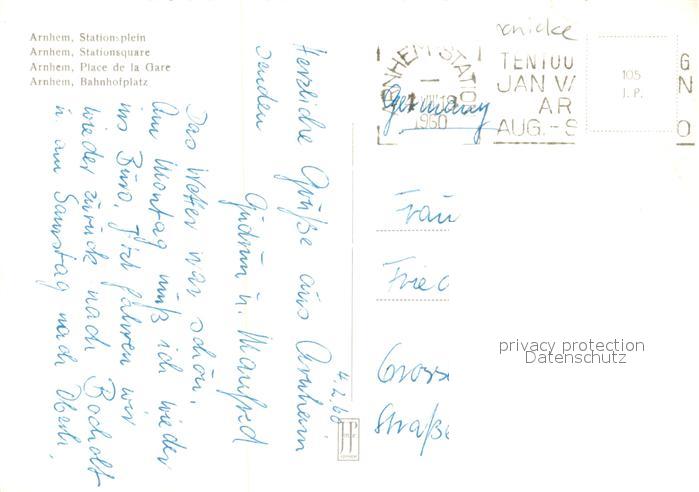 Arnhem, Stationsplein
Arnhem, Stationsquare
Arnhem, Place de la Gare
Arnhem, Bahnhofplatz
Herzliche Grüße aus Arnheim
senden
Gudrun u. Manfred
Das Wetter war schön.
Am Montag muß ich wieder
ins Büro. Jetzt fahren wir
wieder zurück nach Bocholt
u. am Samstag nach Oberh.
4.2.60
ARNHEM STATIO
1960
TENTOO
JAN VA
AR
AUG.-S
G
N
O
105
J. P.
Germany
Frau
Fried
Grosse
Straße
privacy protection
Datenschutz